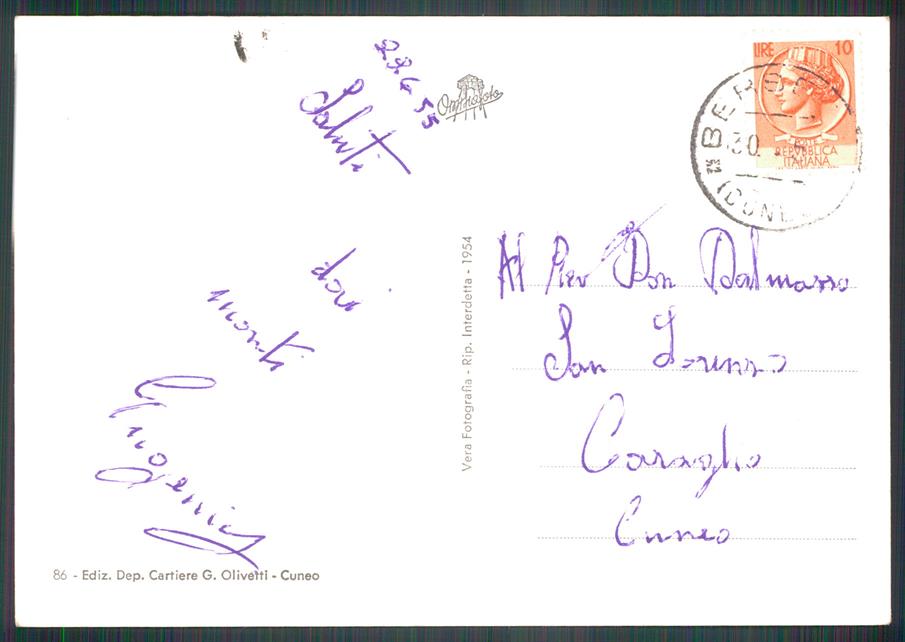 22 6 55
Saluti
dai
monti
Omniafoto
LIRE 10
POSTE
REPVBBLICA
ITALIANA
30
(CUNE
Vera Fotografia - Rip. Interdetta - 1954
Al Don Dalmazzo
San Lorenzo
Caraglio
Cuneo
86 - Ediz. Dep. Cartiere G. Olivetti - Cuneo